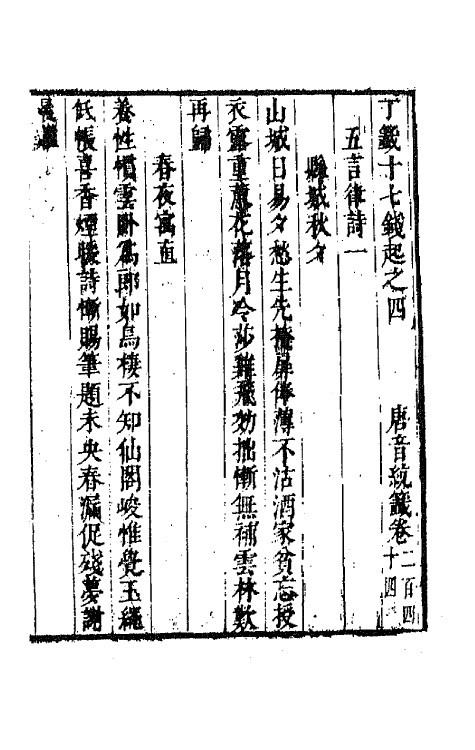 丁籖十七錢起之四 唐音統籖卷二百四十四
五言律詩一
縣城秋夕
山城日易夕愁生先掩扉俸薄不沽酒家貧忘授
衣露重蕙花落月冷莎雞飛効拙慚無補雲林歎
再歸
春夜寓直
養性慣雲卧為郎如鳥棲不知仙閣峻惟覺玉繩
低帳喜香煙暖詩慚賜筆題未央春漏促殘夢謝
晨雞